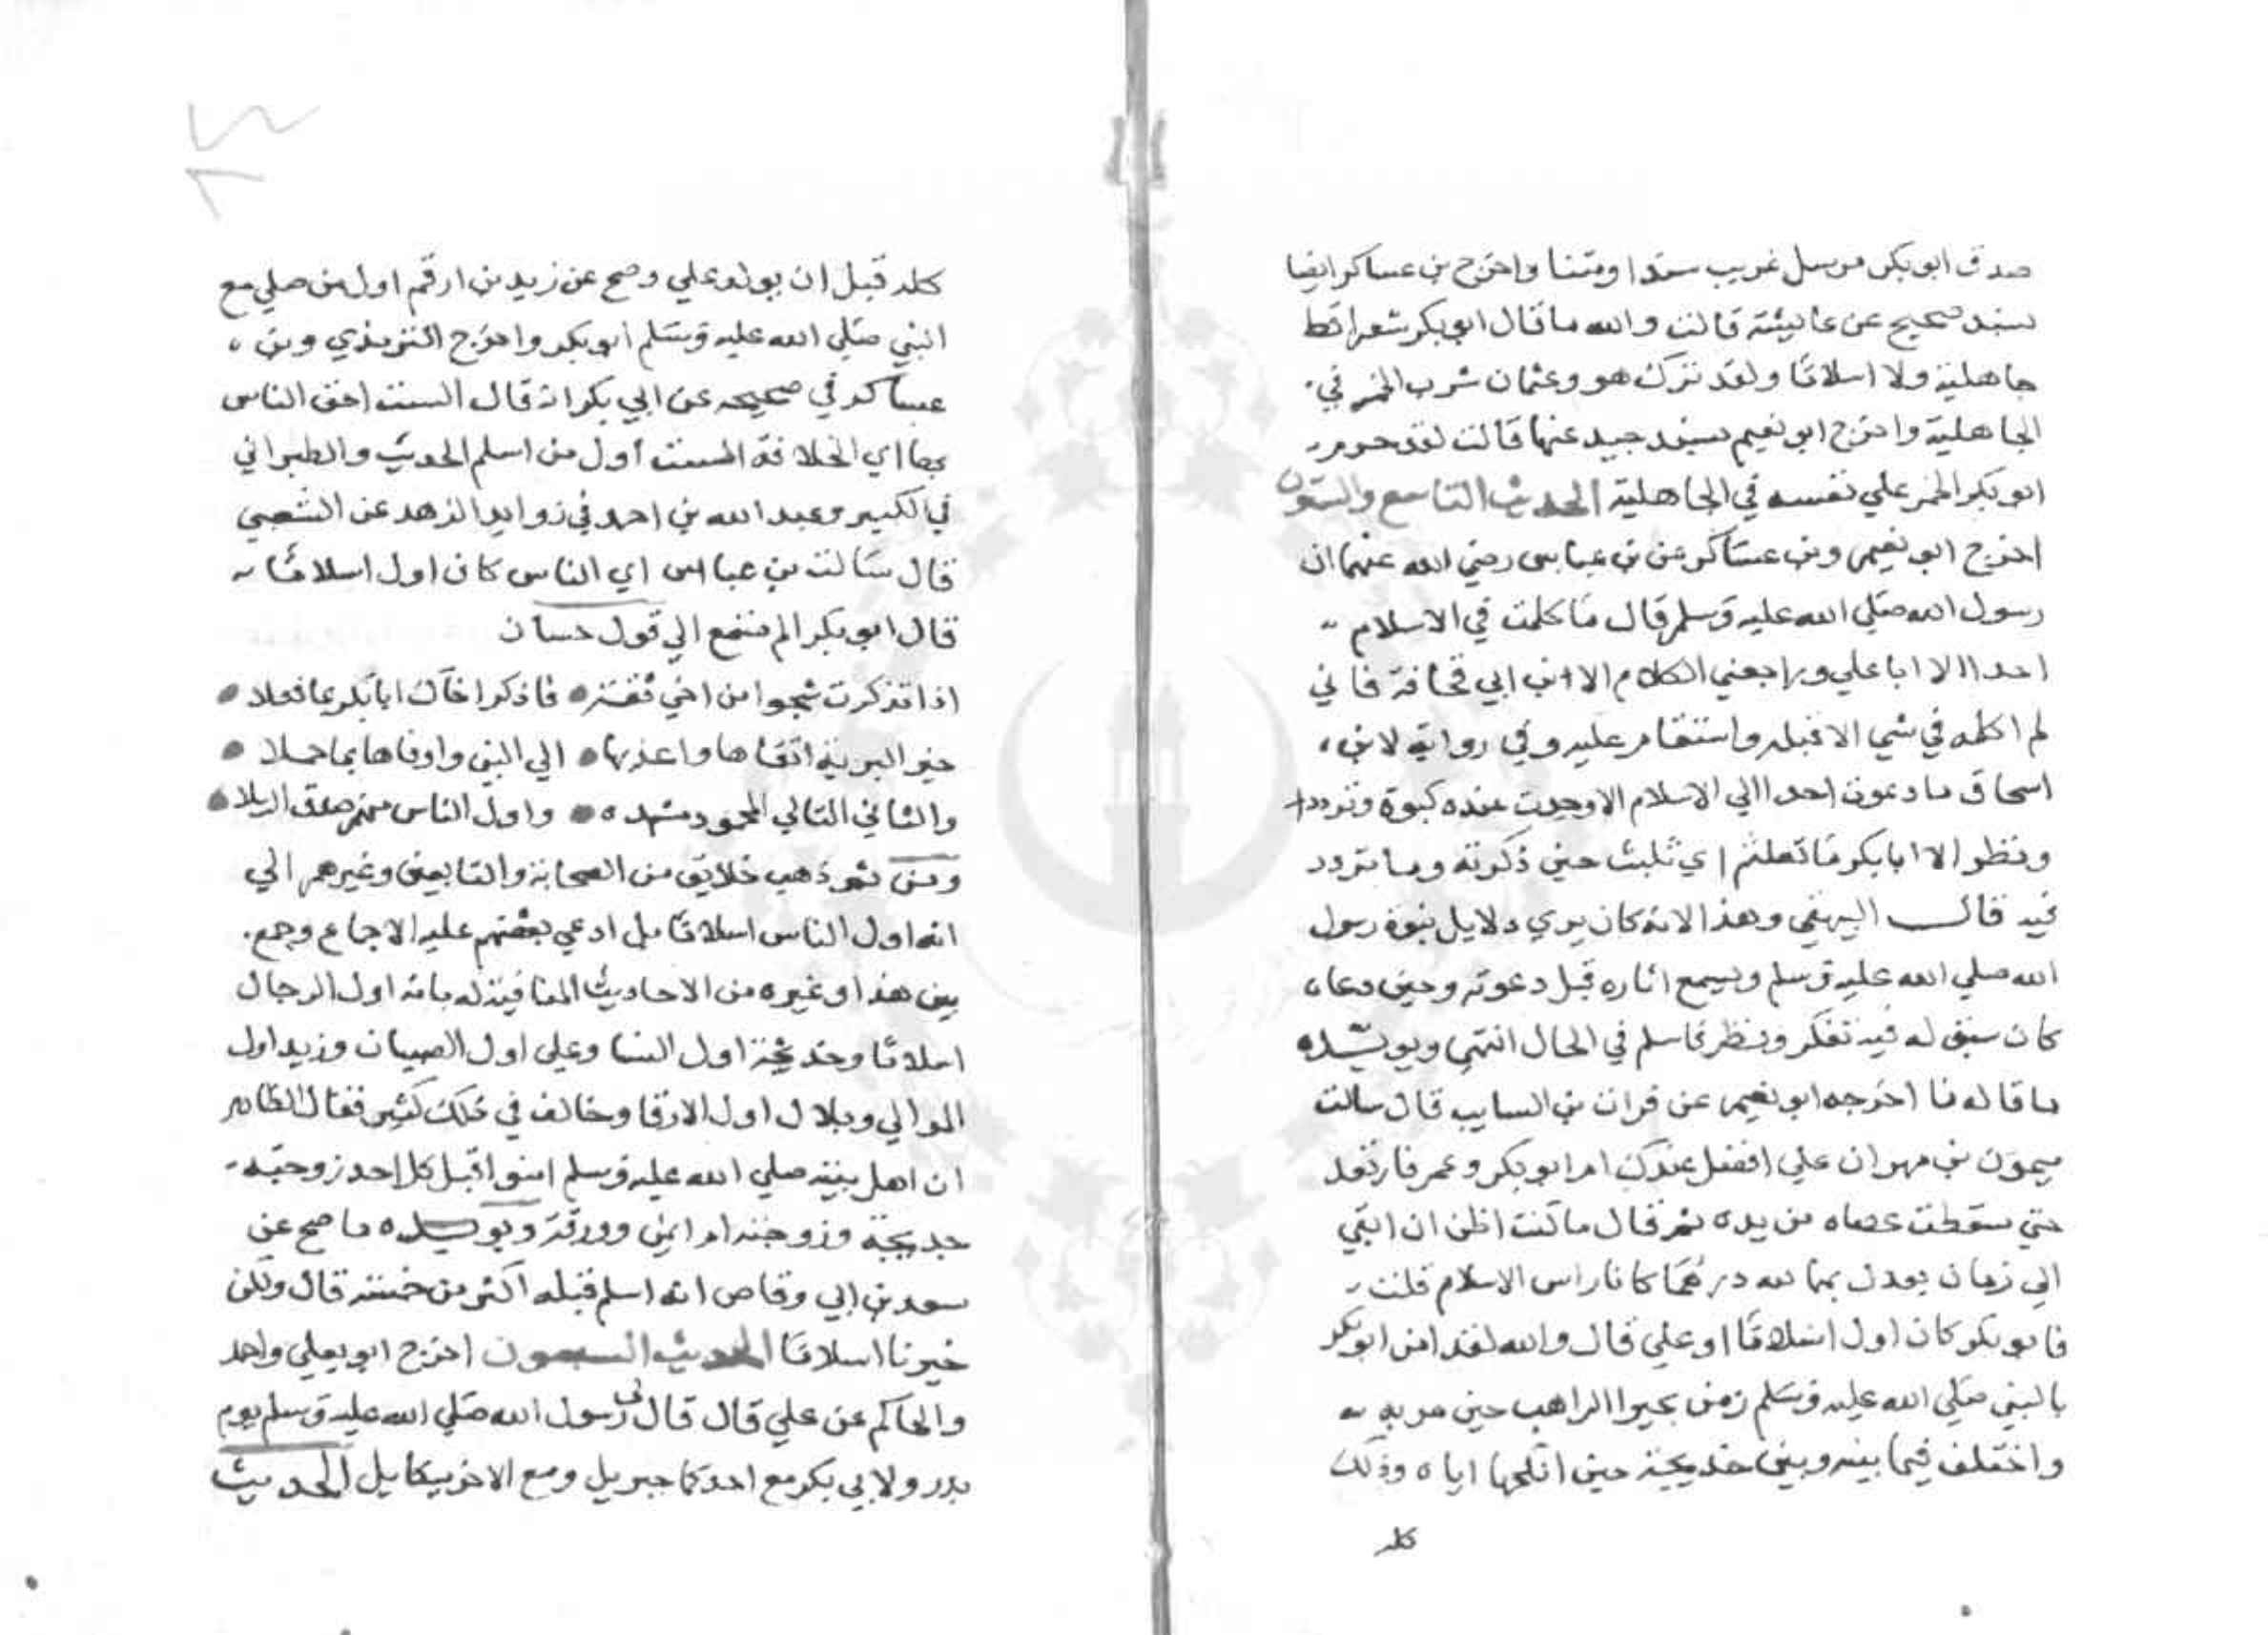 صدق ابو بكر مرسل غريب سندا ومتنا واخرج بن عساكر ايضا
بسند صحيح عن عايشة قالت والله ما قال ابو بكر شعرا قط
جاهلية ولا اسلاما ولقد ترك هو وعثمان شرب الخمر في
الجاهلية واخرج ابو نعيم بسند جيد عنها قالت لقد حرم
ابو بكر الخمر علي نفسه في الجاهلية الحديث التاسع والستون
اخرج ابو نعيم وبن عساكر عن بن عباس رضي الله عنهما ان
رسول الله صلي الله عليه وسلم قال ما كلمت في الاسلام
احدا الا ابا علي وراجعني الكلام الا ابن ابي قحافة فاني
لم اكلمه في شي الا قبله واستقام عليه وفي رواية لابن
اسحاق ما دعوت احدا الي الاسلام الا وجدت عنده كبوة وترددا
ونظر الا ابا بكر ما تعلثم اي تلبث حين ذكرته وما تردد
فيه قال البيهقي وهذا لانه كان يري دلايل نبوة رسول
الله صلي الله عليه وسلم ويسمع اثاره قبل دعوته وحين دعاه
كان سبق له فيه تفكر ونظر فاسلم في الحال انتهي ويويده
ما قاله ما اخرجه ابو نعيم عن فرات بن السايب قال سالت
ميمون بن مهران علي افضل عندك ام ابو بكر وعمر فارتعد
حتي سقطت عصاه من يده ثم قال ما كنت اظن ان ابقي
الي زمان يعدل بهما لله درهما كانا راس الاسلام قلت
فابو بكر كان اول اسلاما او علي قال والله لقد امن ابو بكر
بالنبي صلي الله عليه وسلم زمن بحيرا الراهب حين مر به
واختلف فيما بينه وبين خديجة حين انكحها اياه وذلك
كله
كله قبل ان يولد علي وصح عن زيد بن ارقم اول من صلي مع
النبي صلي الله عليه وسلم ابو بكر واخرج الترمذي وبن
عساكر في صحيحه عن ابي بكر انه قال الست احق الناس
بها اي الخلافة الست اول من اسلم الحديث والطبراني
في الكبير وعبد الله بن احمد في زوايد الزهد عن الشعبي
قال سالت بن عباس اي الناس كان اول اسلاما
قال ابو بكر الم تسمع الي قول حسان
اذا تذكرت شجوا من اخي ثقة فاذكر اخاك ابا بكر بما فعلا
خير البرية اتقاها واعدلها الي النبي واوفاها بما حملا
والثاني التالي المحمود مشهده واول الناس منهم صدق الرسلا
ومن ثم ذهب خلايق من الصحابة والتابعين وغيرهم الي
انه اول الناس اسلاما بل ادعي بعضهم عليه الاجماع وجمع
بين هذا وغيره من الاحاديث المنافية له بانه اول الرجال
اسلاما وخديجة اول النسا وعلي اول الصبيان وزيد اول
الموالي وبلال اول الارقا وخالف في ذلك كثير فقال الظاهر
ان اهل بيته صلي الله عليه وسلم امنوا قبل كل احد زوجته
خديجة وزوجته ام ايمن وورقة ويويده ما صح عن
سعد بن ابي وقاص انه اسلم قبله اكثر من خمسة قال ولكن
خيرنا اسلاما الحديث السبعون اخرج ابو يعلي واحمد
والحاكم عن علي قال قال لي رسول الله صلي الله عليه وسلم يوم
بدر ولابي بكر مع احدكما جبريل ومع الاخر ميكايل الحديث